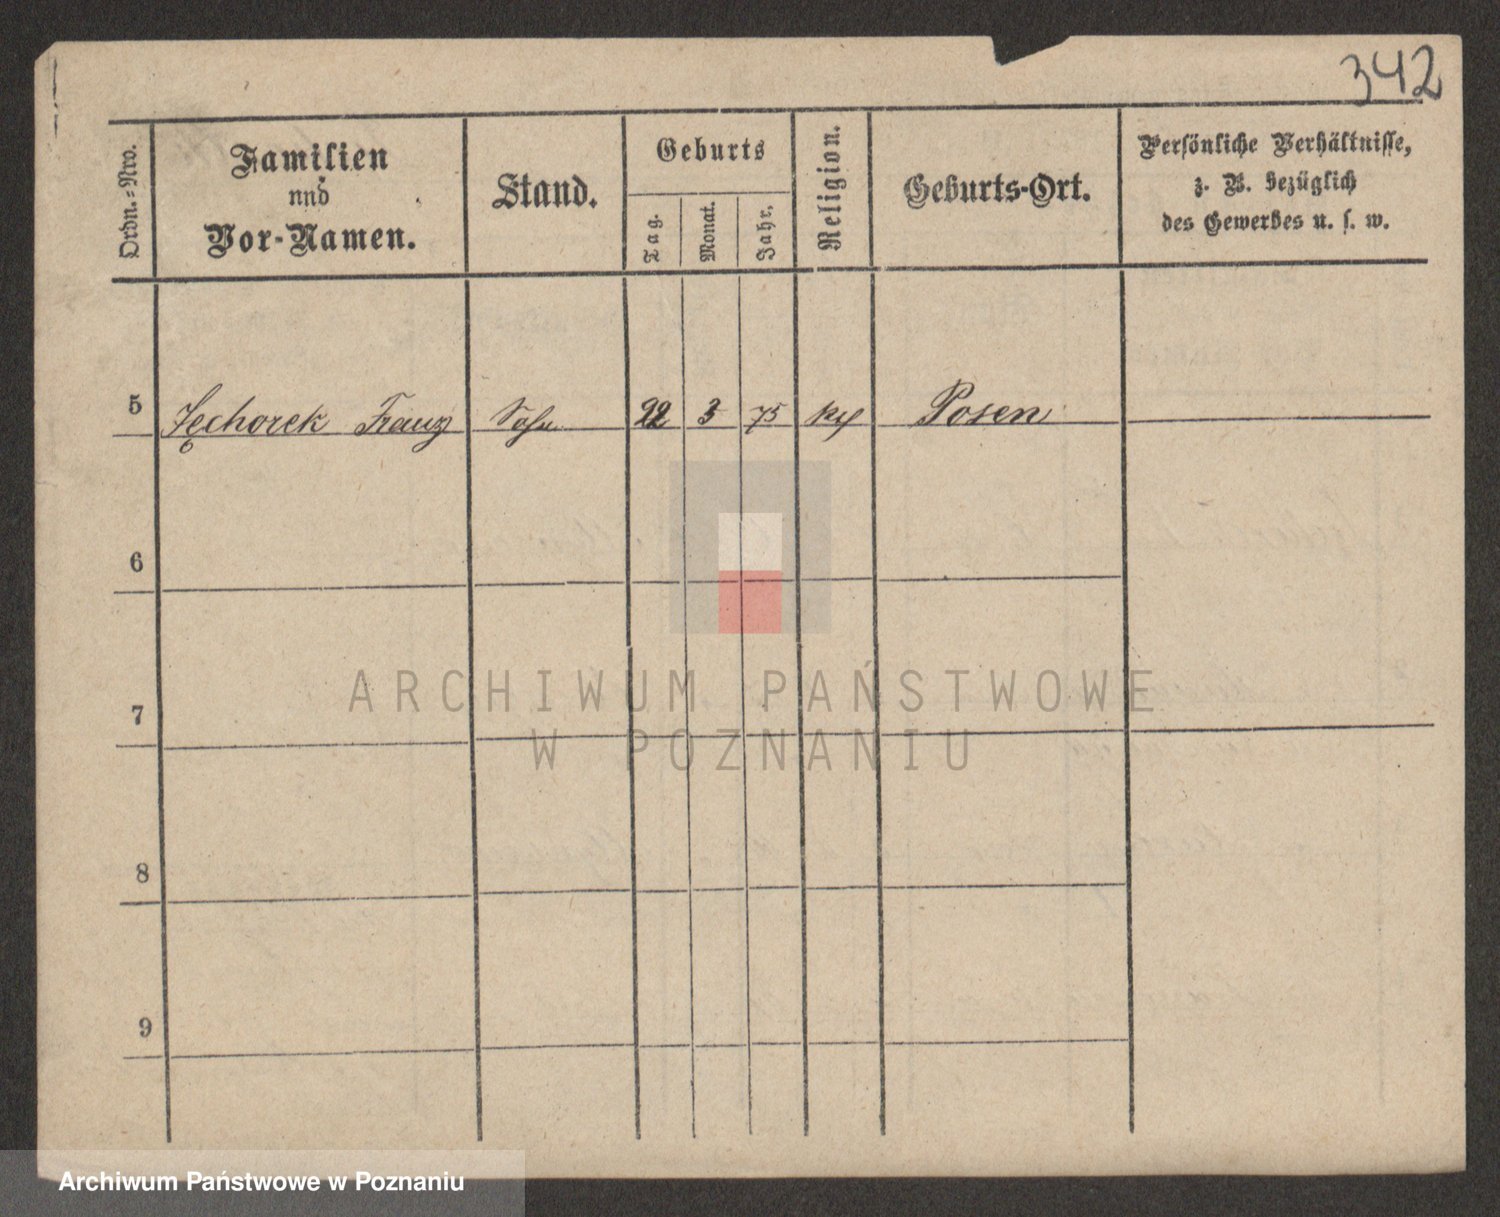 342
Ordn.-Nro.
Familien
und
Vor-Namen.
Stand.
Geburts
Tag.
Monat.
Jahr.
Religion.
Geburts-Ort.
Persönliche Verhältnisse,
z. B. bezüglich
des Gewerbes u. s. w.
5 Sęchorek Franz Sohn 22 3 75 kth Posen
6
7
8
9
ARCHIWUM PAŃSTWOWE
W POZNANIU
Archiwum Państwowe w Poznaniu